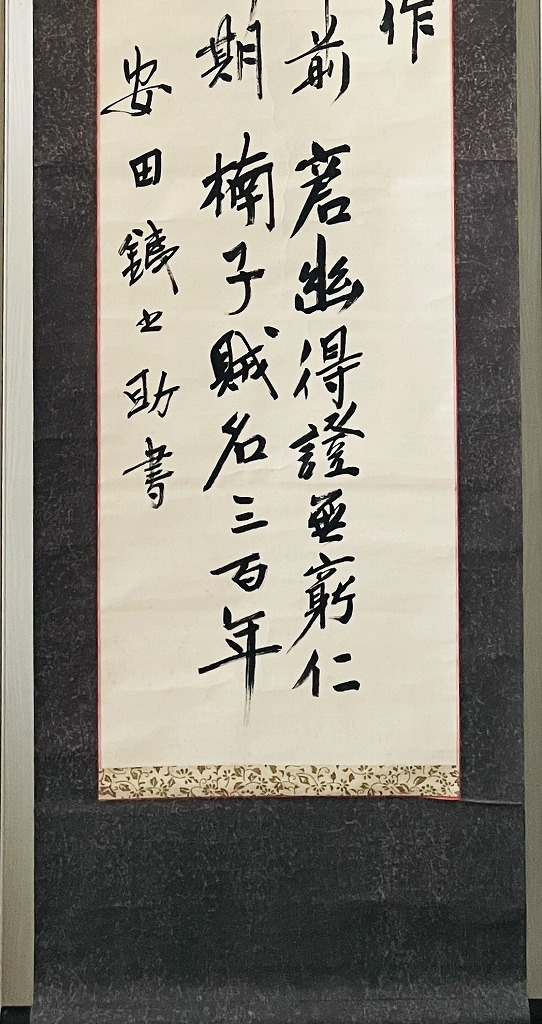 作
前窘幽得證無窮仁
期楠子賊名三百年
安田鐵之助書